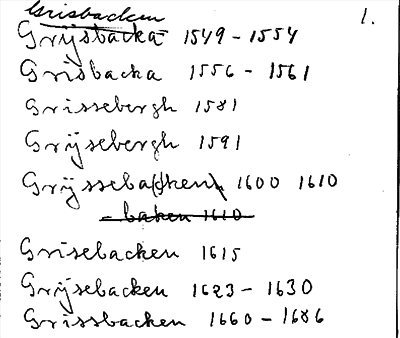 Grisbacken 1.
Grijsbacka 1549 - 1554
Grisbacka 1556 - 1561
Grissebergh 1581
Grijsebergh 1591
Grijssebacken 1600 1610
- baken 1610
Grisebacken 1615
Grijsebacken 1623 - 1630
Grissbacken 1660 - 1686